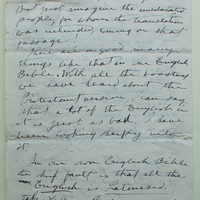 But just imagine the uneducated
people for whom the translation
was intended coming on that
passage!
There are a good many
things like that in our English
Bible. With all the boasting
we have heard about the
Protestant version I can say
that a lot of the English in
it is just as bad. I have
been looking sharply into
it
In our own English Bible
the chief fault is that all the
English is Latinised.